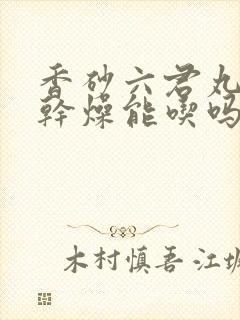 香砂六君丸
幹燥能喫吗
木村慎吾·江坂